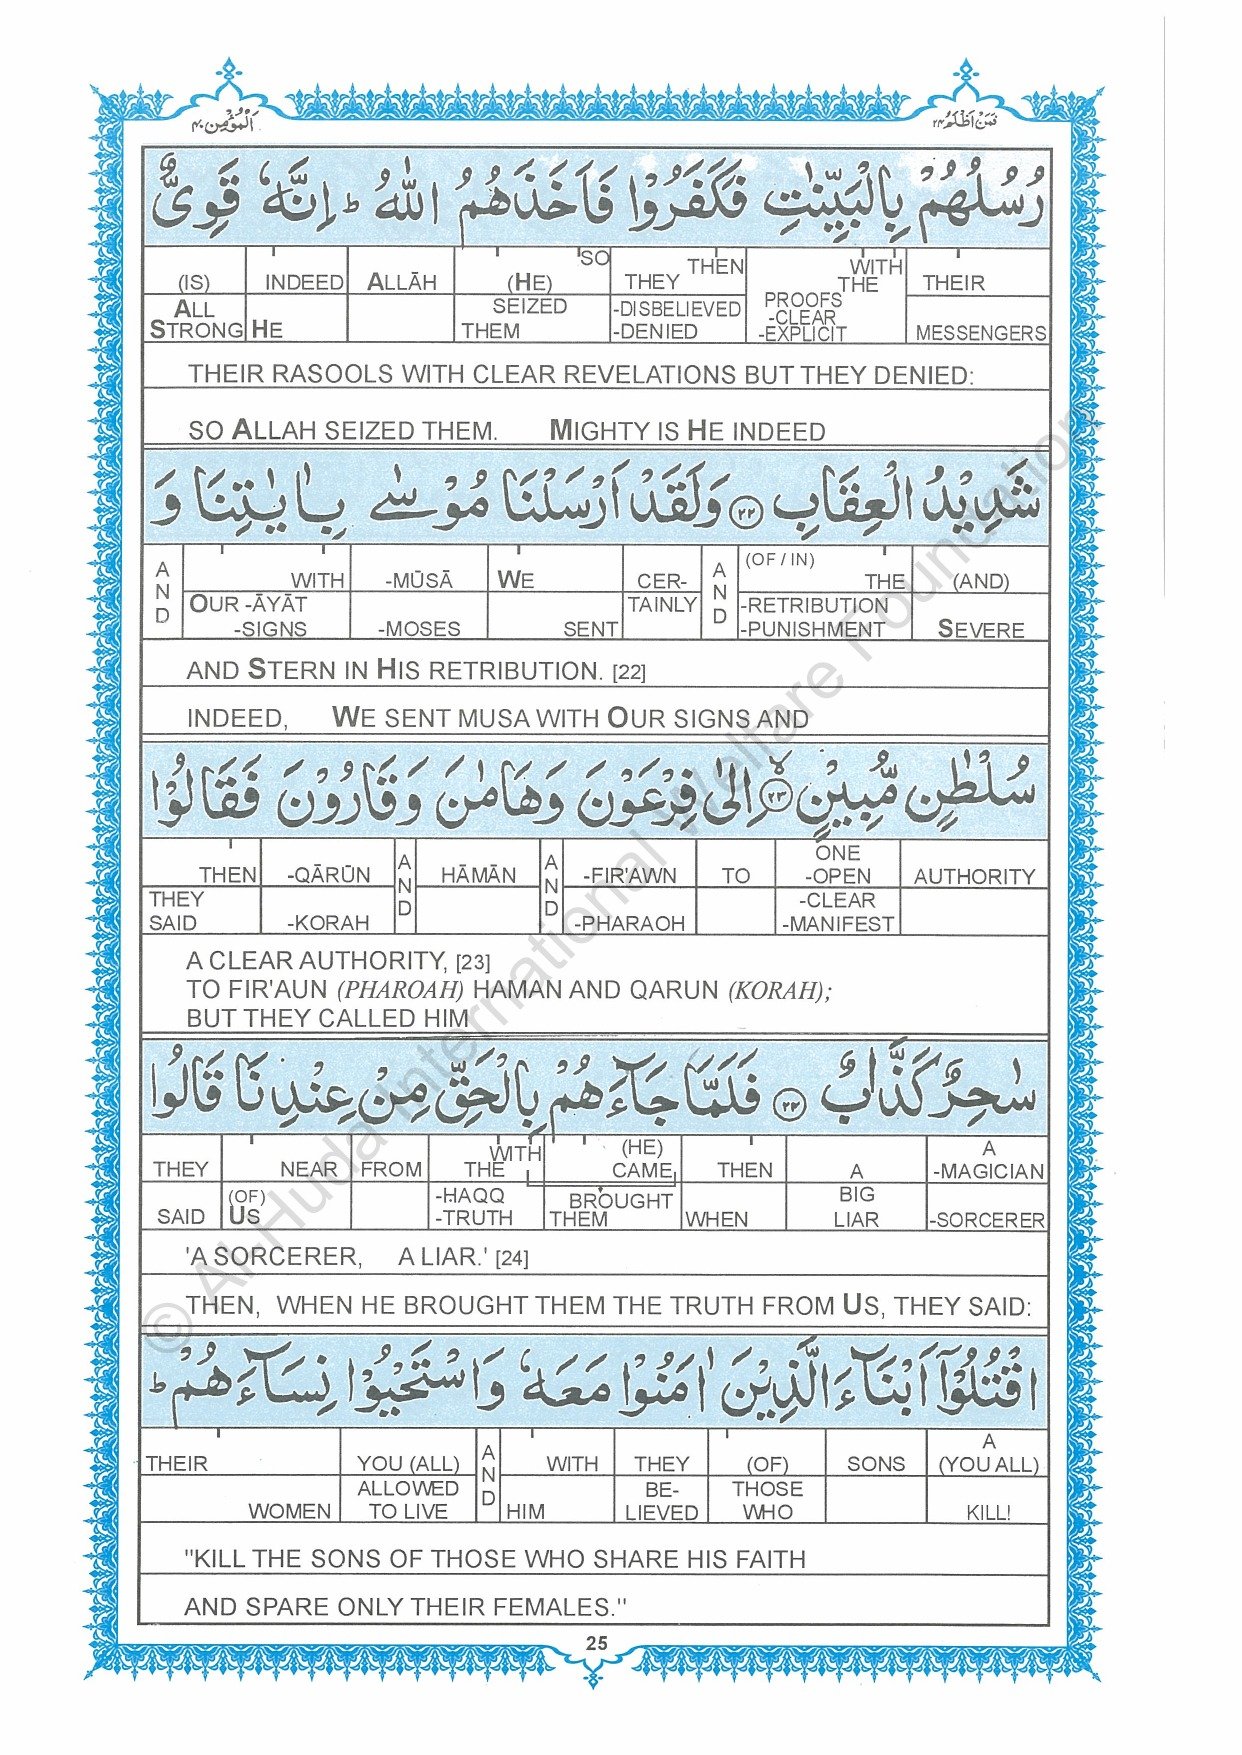 اَلْمُؤْمِن ٤٠
فَمَنْ اَظْلَمُ ٢٤
رُسُلُهُمْ بِالْبَيِّنٰتِ فَكَفَرُوْا فَاَخَذَهُمُ اللّٰهُ ؕ اِنَّهٗ قَوِىٌّ
(IS) INDEED ALLĀH (HE) SO THEY THEN WITH THE THEIR
ALL STRONG HE SEIZED THEM -DISBELIEVED -DENIED PROOFS -CLEAR -EXPLICIT MESSENGERS
THEIR RASOOLS WITH CLEAR REVELATIONS BUT THEY DENIED:
SO ALLAH SEIZED THEM. MIGHTY IS HE INDEED
شَدِيْدُ الْعِقَابِ ﴿٢٢﴾ وَلَقَدْ اَرْسَلْنَا مُوْسٰى بِاٰيٰتِنَا وَ
AND WITH -MŪSĀ WE CER- AND (OF / IN) THE (AND)
OUR -ĀYĀT -SIGNS -MOSES SENT TAINLY -RETRIBUTION -PUNISHMENT SEVERE
AND STERN IN HIS RETRIBUTION. [22]
INDEED, WE SENT MUSA WITH OUR SIGNS AND
سُلْطٰنٍ مُّبِيْنٍ ﴿٢٣﴾ۙ اِلٰى فِرْعَوْنَ وَهَامٰنَ وَقَارُوْنَ فَقَالُوْا
THEN -QĀRŪN AND HĀMĀN AND -FIR'AWN TO ONE -OPEN AUTHORITY
THEY SAID -KORAH -PHARAOH -CLEAR -MANIFEST
A CLEAR AUTHORITY, [23]
TO FIR'AUN (PHAROAH) HAMAN AND QARUN (KORAH);
BUT THEY CALLED HIM
سٰحِرٌ كَذَّابٌ ﴿٢٤﴾ فَلَمَّا جَآءَهُمْ بِالْحَقِّ مِنْ عِنْدِنَا قَالُوا
THEY NEAR FROM WITH THE (HE) CAME THEN A A -MAGICIAN
SAID (OF) US -ḤAQQ -TRUTH BROUGHT THEM WHEN BIG LIAR -SORCERER
'A SORCERER, A LIAR.' [24]
THEN, WHEN HE BROUGHT THEM THE TRUTH FROM US, THEY SAID:
اقْتُلُوْٓا اَبْنَآءَ الَّذِيْنَ اٰمَنُوْا مَعَهٗ وَاسْتَحْيُوْا نِسَآءَهُمْ ؕ
THEIR YOU (ALL) AND WITH THEY (OF) SONS A (YOU ALL)
WOMEN ALLOWED TO LIVE HIM BE- LIEVED THOSE WHO KILL!
"KILL THE SONS OF THOSE WHO SHARE HIS FAITH
AND SPARE ONLY THEIR FEMALES."
25
© Al-Huda International Welfare Foundation